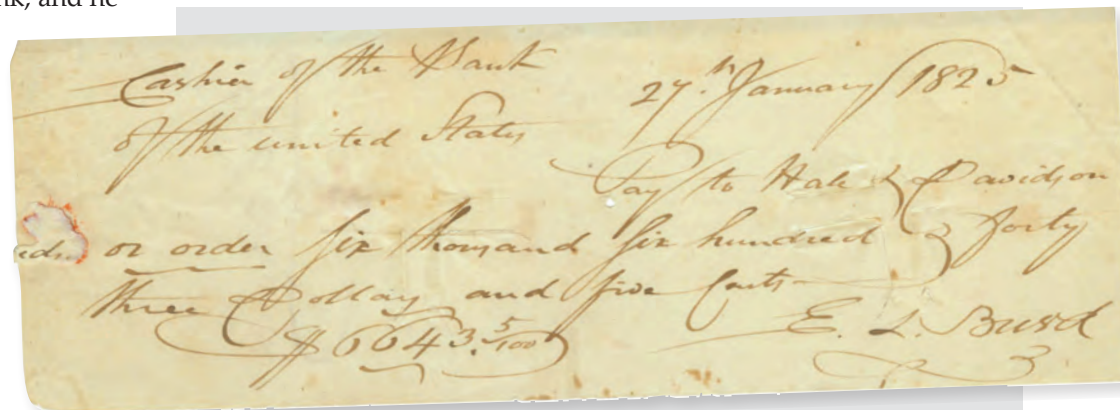 nk, and he
Cashier of the Bank
27.th January 1825
of the united States
Pay to Hale & Davidson
or order six thousand six hundred & forty
three Dollars and five Cents
$6643.5/100
E. L. Burd